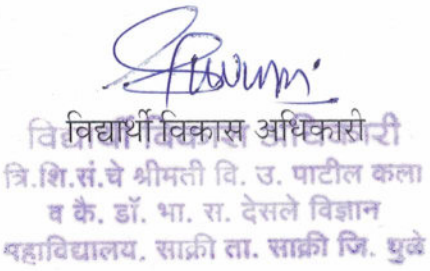 विद्यार्थी विकास अधिकारी
विद्यार्थी विकास अधिकारी
त्रि.शि.सं.चे श्रीमती वि. उ. पाटील कला
व कै. डॉ. भा. रा. देसले विज्ञान
महाविद्यालय, साक्री ता. साक्री जि. धुळे